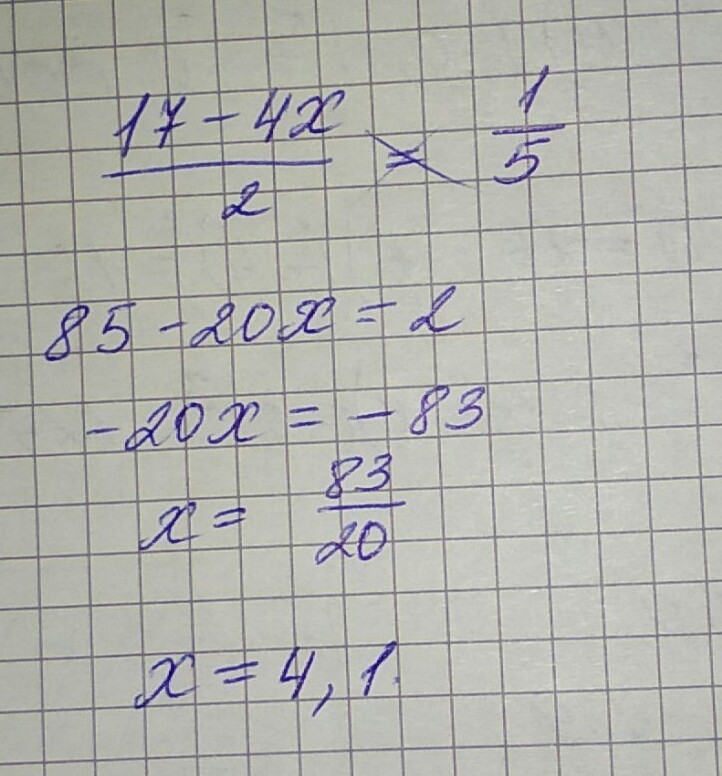 17 - 4x / 2 = 1 / 5
85 - 20x = 2
-20x = -83
x = 83 / 20
x = 4,1